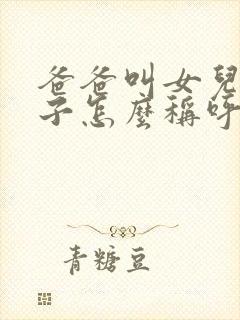 爸爸叫女兒
子怎麼稱呼
青糖豆